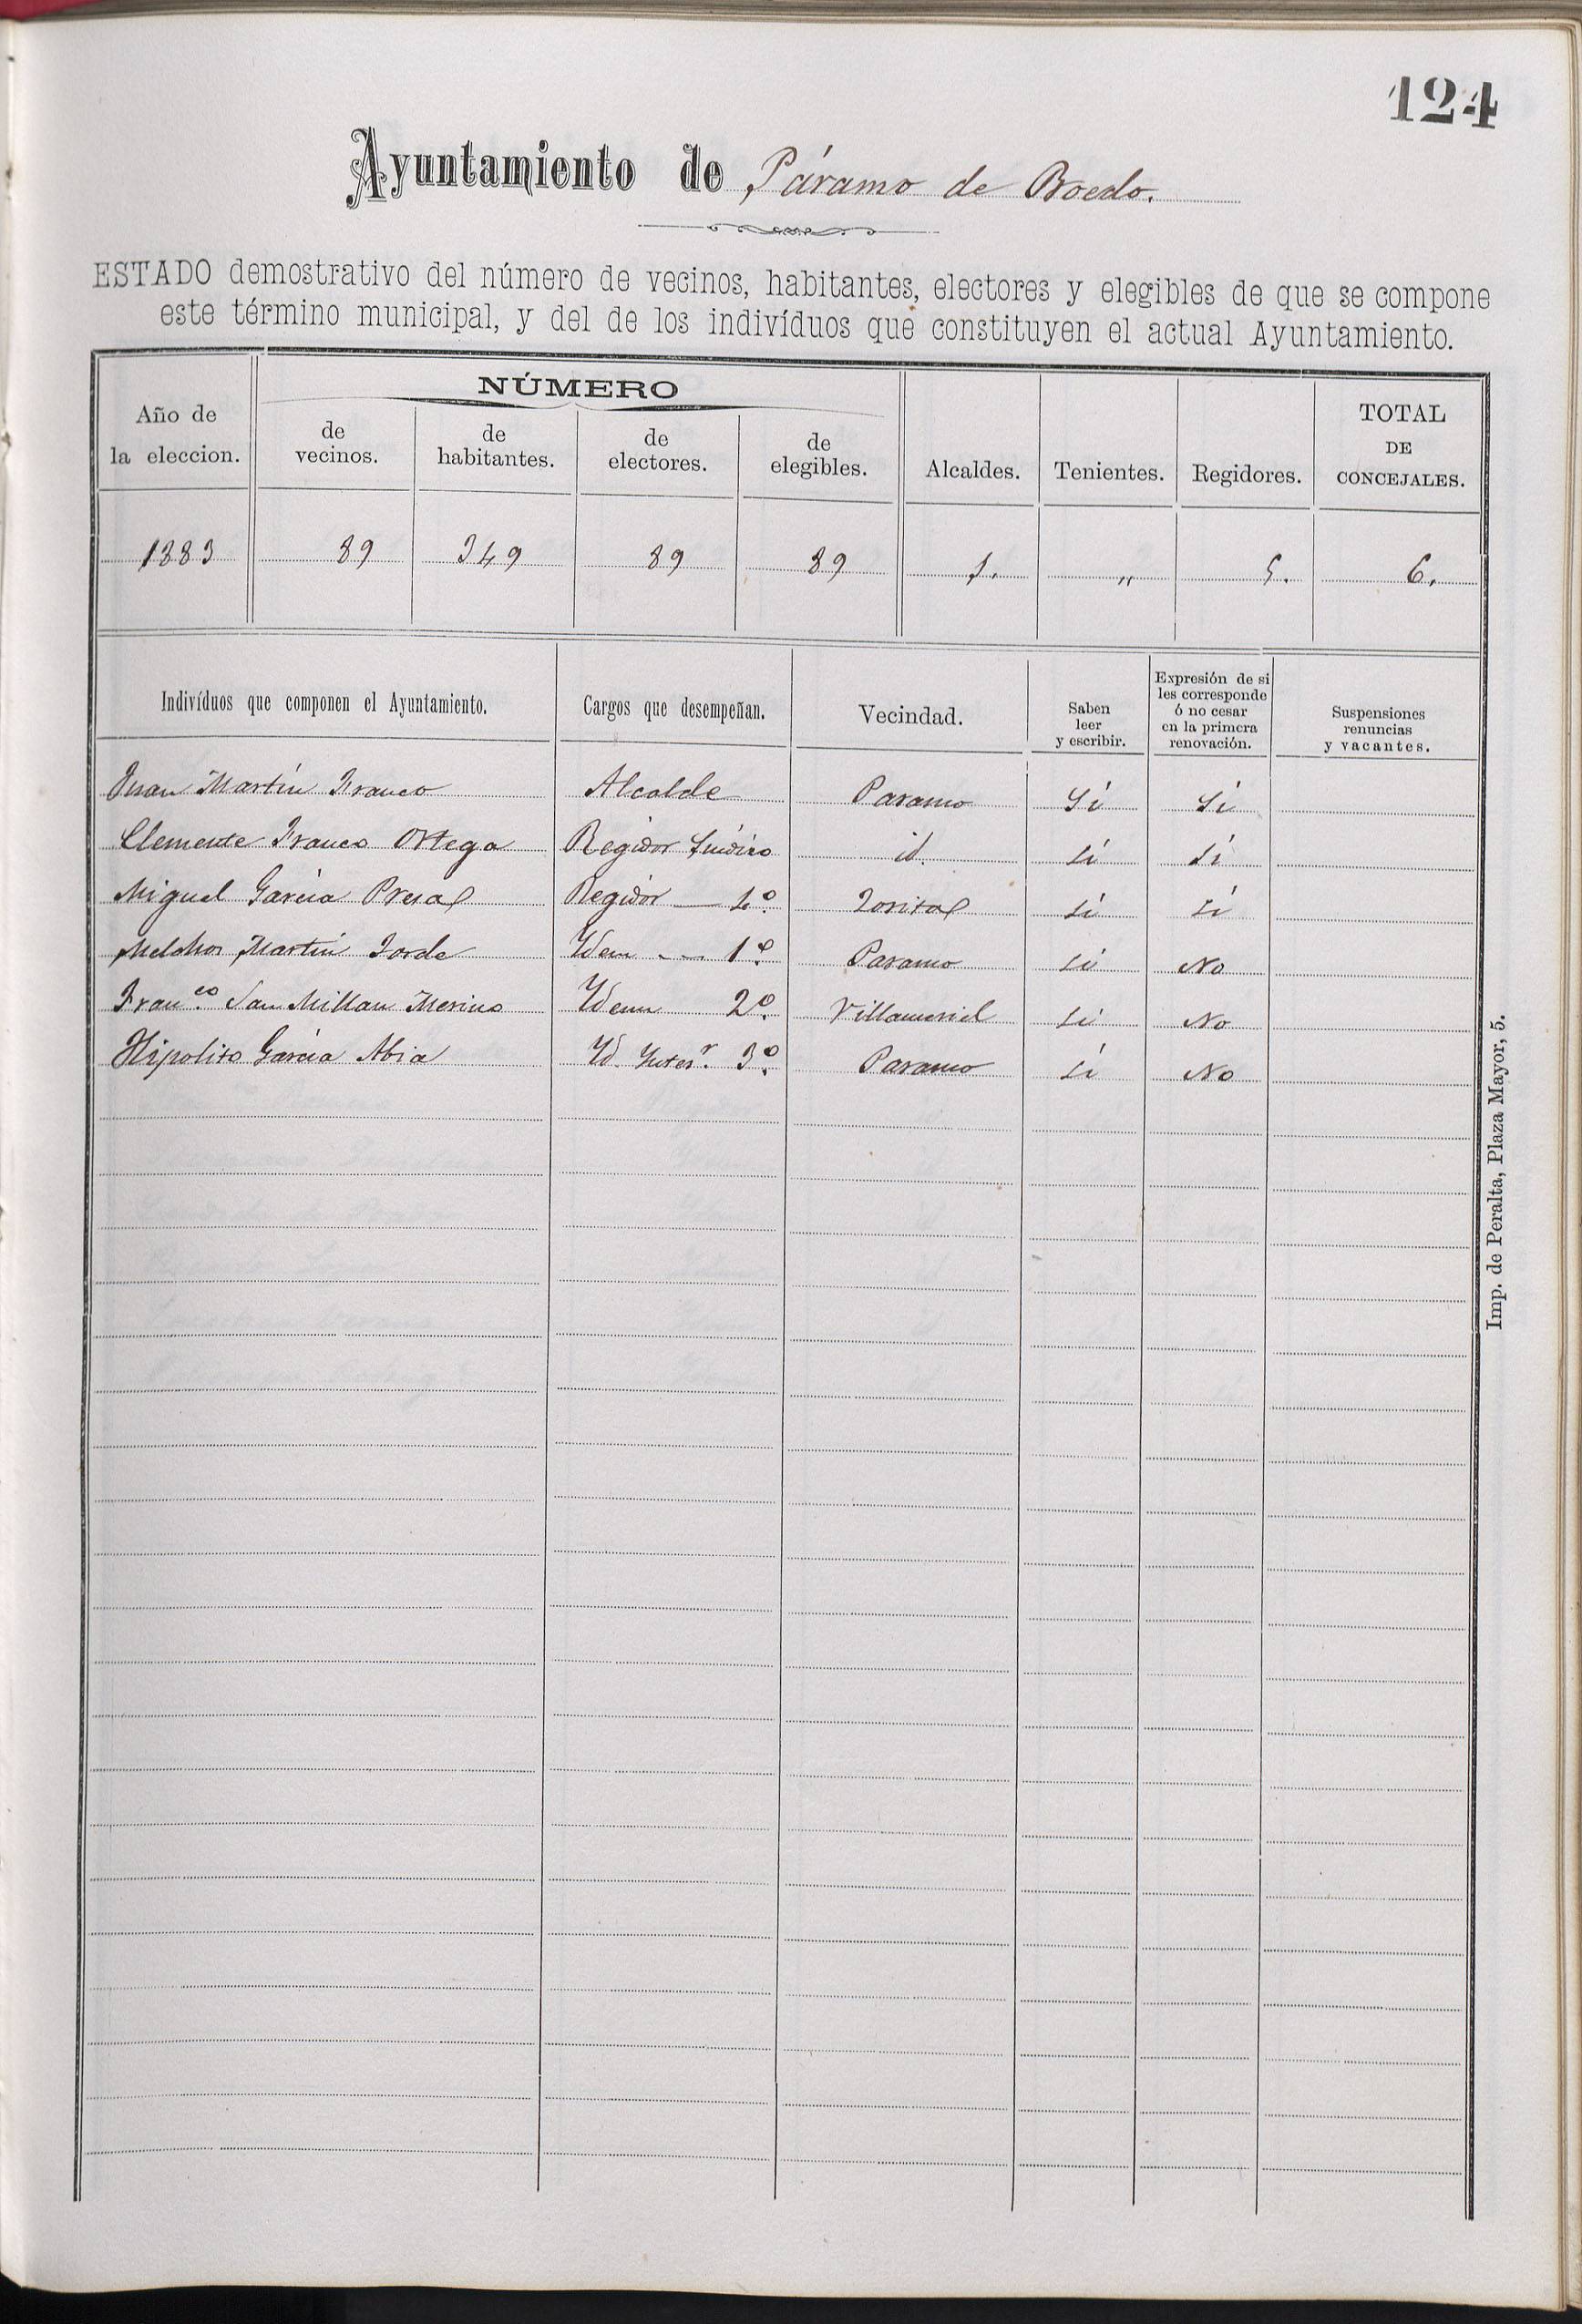 124
Ayuntamiento de Páramo de Boedo.
ESTADO demostrativo del número de vecinos, habitantes, electores y elegibles de que se compone
este término municipal, y del de los indivíduos que constituyen el actual Ayuntamiento.
Año de la eleccion. NÚMERO de vecinos. de habitantes. de electores. de elegibles. Alcaldes. Tenientes. Regidores. TOTAL DE CONCEJALES.
1883 89 349 89 89 1. " 5. 6.
Indivíduos que componen el Ayuntamiento. Cargos que desempeñan. Vecindad. Saben leer y escribir. Expresión de si les corresponde ó no cesar en la primera renovación. Suspensiones renuncias y vacantes.
Juan Martín Franco Alcalde Paramo Si Si
Clemente Franco Ortega Regidor Síndico id. Si Si
Miguel García Presa Regidor — Zorita Si Si
Melchor Martín Jorde Idem -- 1º Paramo Si No
Fran.co San Millan Merino Idem 2º Villameriel Si No
Hipolito García Abia Id. Inter.r 3º Paramo Si No
Imp. de Peralta, Plaza Mayor, 5.